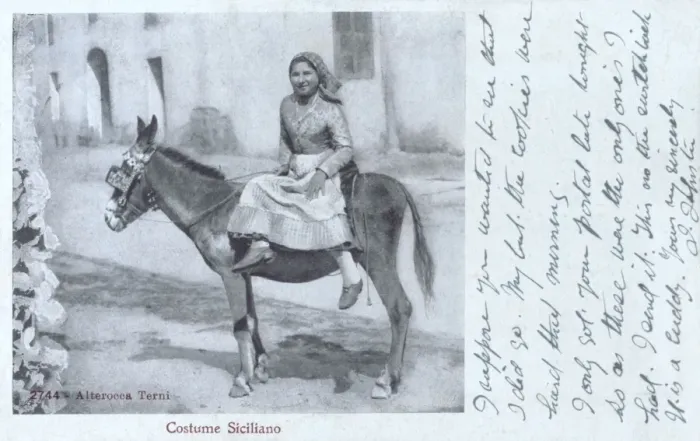 2744 - Alterocca Terni
Costume Siciliano
I suppose you wanted to see that
I did go. My but the cookies were
hard that morning.
I only got your postal late tonight
so as these were the only ones I
had. I send it. This no the
It is a cuddy. Yours sincerely